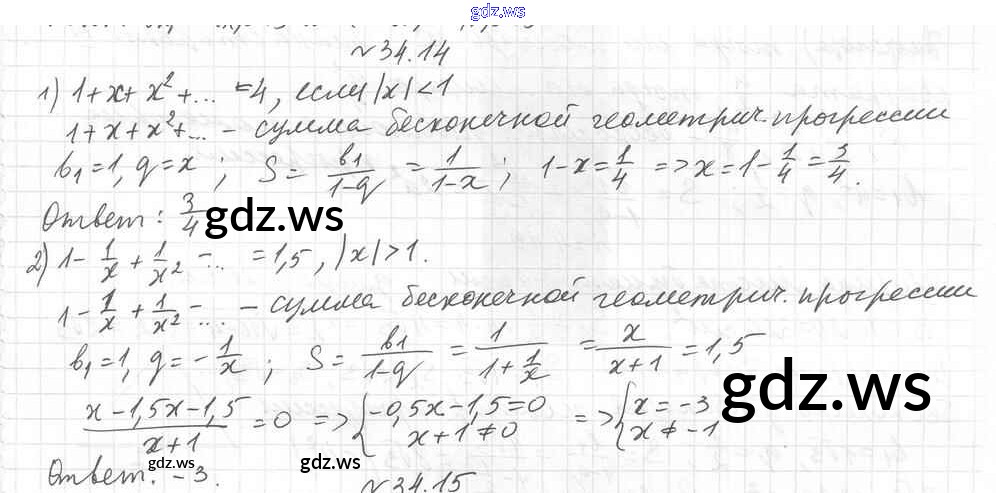 gdz.ws
№34.14
1) 1+x+x²+... =4, если |x|<1
1+x+x²+... - сумма бесконечной геометрич. прогрессии
b₁=1, q=x ; S= b₁/(1-q) = 1/(1-x) ; 1-x=1/4 => x=1-1/4=3/4.
Ответ: 3/4
gdz.ws
2) 1-1/x+1/x²-... =1,5, |x|>1.
1-1/x+1/x²-... - сумма бесконечной геометрич. прогрессии
b₁=1, q=-1/x ; S= b₁/(1-q) = 1/(1+1/x) = x/(x+1) =1,5
gdz.ws
(x-1,5x-1,5)/(x+1) =0 => { -0,5x-1,5=0 x+1≠0 => { x=-3 x≠-1
Ответ: -3.
gdz.ws
gdz.ws
№34.15